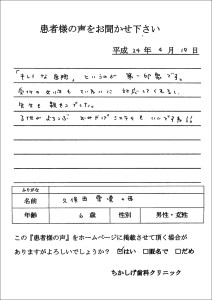 患者様の声をお聞かせ下さい
平成 24 年 4 月 10 日
「キレイな医院」というのが第一印象です。
受付の女性もていねいに対応してくれるし、
先生も親切でした。
子供がよろこぶ おかげさまシステムもいいですね!!
ふりがな
名前
久保田
の母
年齢 6 歳 性別 男性・女性
この『患者様の声』をホームページに掲載させて頂く場合が
ありますがよろしいでしょうか? ☑はい □匿名で □だめ
ちかしげ歯科クリニック